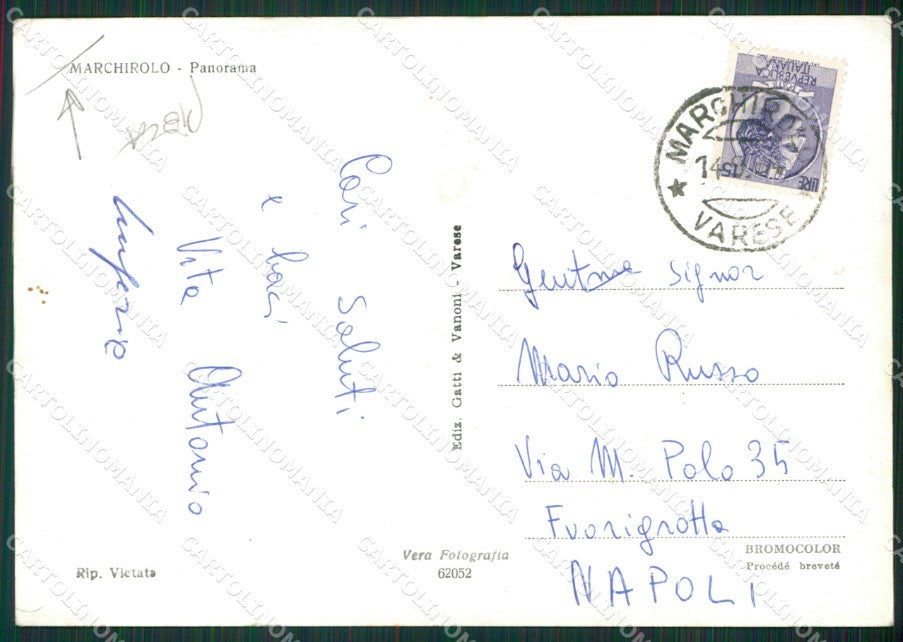 MARCHIROLO - Panorama
Cari saluti
e baci
Vita Antonio
Ediz. Gatti & Vanoni - Varese
REPVBBLICA
ITALIANA
LIRE 15
MARCHIROLO
14
VARESE
Signor
Mario Russo
Via M. Polo 35
Fuorigrotta
NAPOLI
Vera Fotografia
62052
BROMOCOLOR
Procédé breveté
Rip. Vietata
CARTOLINOMANIA